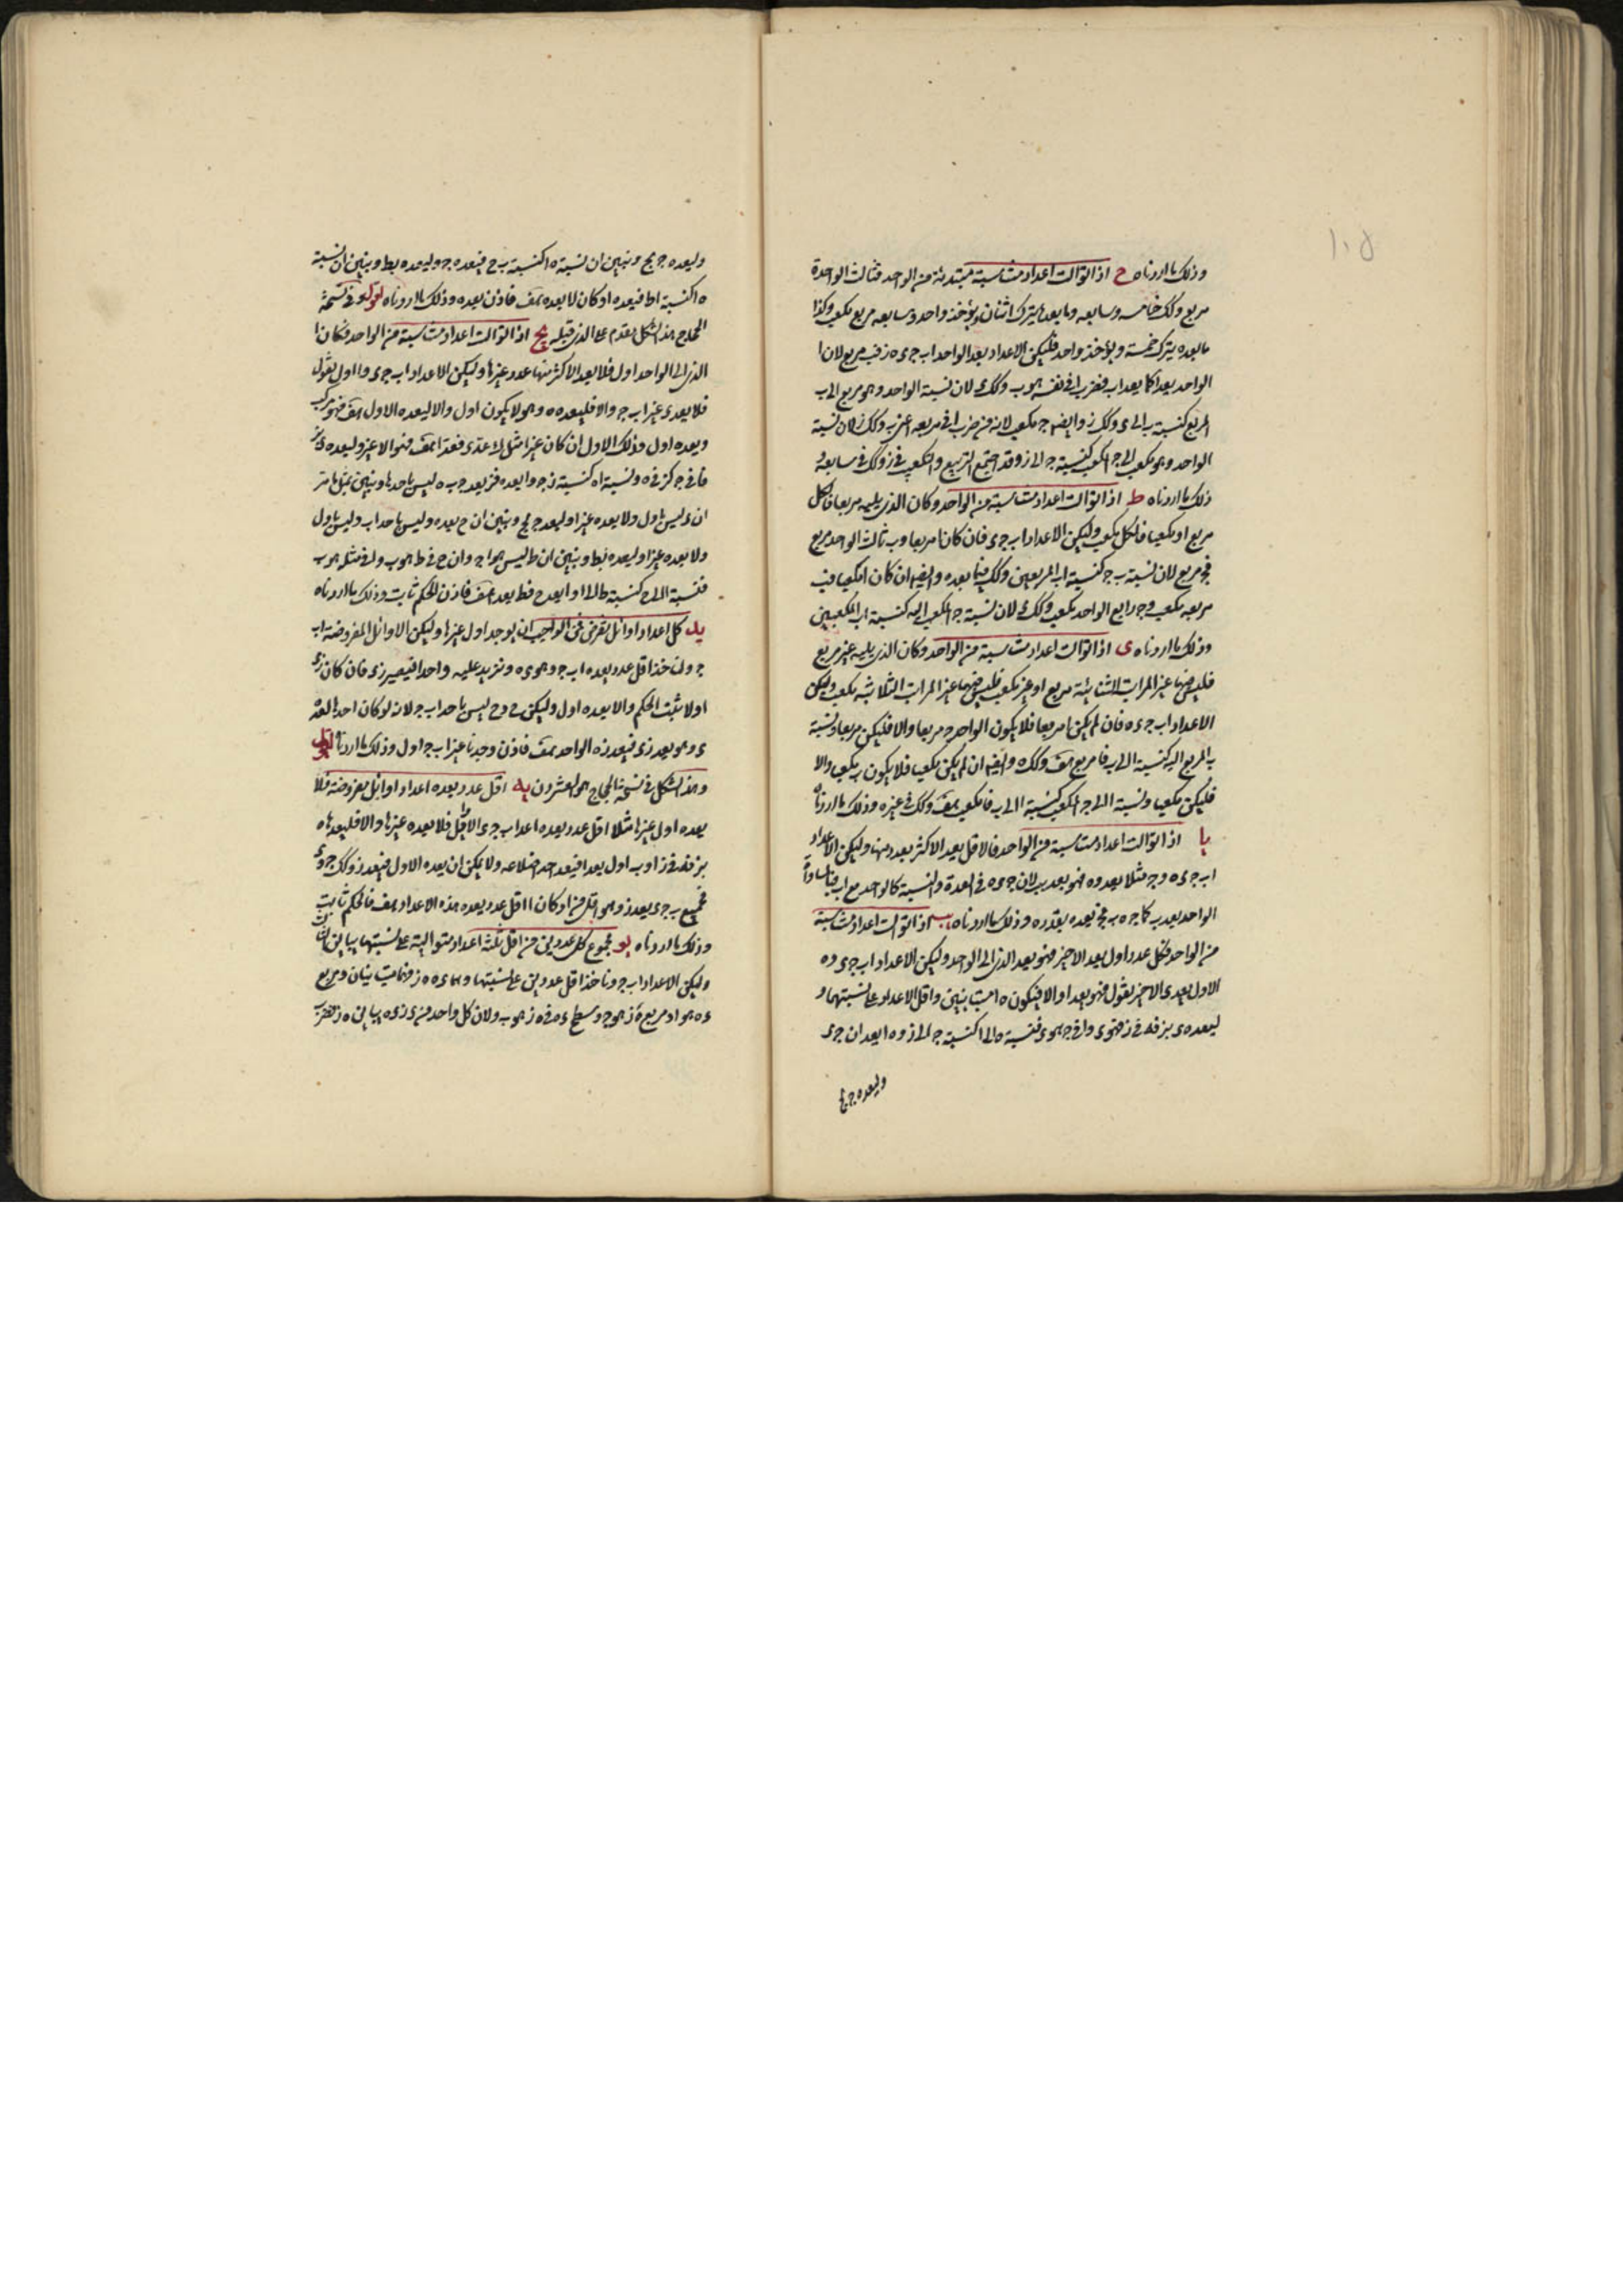 ١٠٥
وذلك ما اردناه ح اذا توالت اعداد متناسبة مبتدئة من الواحد فثالث الواحد
مربع وكك خامسه وسابعه وما بعدها يترك اثنان ويؤخذ واحد وسابعه مربع مكعب وكذا
ما بعده يترك خمسة ويؤخذ واحد فليكن الاعداد بعد الواحد اب ج د ه ز فب مربع لان ا
الواحد يعد ا كما يعد ا ب فضرب ا في نفسه هو ب وكك د لان نسبة الواحد وهو مربع الى ب
المربع كنسبة ب الى د وكك ز وايضا ج مكعب لانه من ضرب ا في مربعه اعني ب وكك ز لان نسبة
الواحد وهو مكعب الى ج المكعب كنسبة ج الى ز وقد اجتمع التربيع والتكعيب في ز وكك في سابعه و
ذلك ما اردناه ط اذا توالت اعداد متناسبة من الواحد وكان الذي يليه مربعا فالكل
مربع او مكعبا فالكل مكعب وليكن الاعداد اب ج د فان كان ا مربعا وب ثالث الواحد مربع
فج مربع لان نسبة ب ج كنسبة اب المربعين وكك فيما بعده وايضا ان كان ا مكعبا فب
مربعه مكعب وج رابع الواحد مكعب وكك د لان نسبة ج المكعب اليه كنسبة اب المكعبين
وذلك ما اردناه ى اذا توالت اعداد متناسبة من الواحد وكان الذي يليه غير مربع
فليس فيها غير المراتب الثنائية مربع او غير مكعب فليس فيها غير المراتب الثلاثية مكعب وليكن
الاعداد اب ج د ه فان لم يكن ا مربعا فلا يكون الواحد ج مربعا والا فليكن مربعا ونسبة
ب المربع اليه كنسبة ا الى ب فا مربع هف وكك ه وايضا ان لم يكن مكعبا فلا يكون ب مكعب والا
فليكن مكعبا ونسبة ا الى ج المكعب كنسبة ا الى ب فا مكعب هف وكك في غيره وذلك ما اردناه
يا اذا توالت اعداد متناسبة من الواحد فالاقل يعد الاكثر بعدد منها وليكن الاعداد
اب ج د ه وج مثلا يعد ه فهو يعد ب لان ج د ه في العدة والنسبة كالواحد مع اب فبالمساواة
الواحد يعد ب كما ج ه ب فج يعد ه بقدر ه وذلك ما اردناه يب اذا توالت اعداد متناسبة
من الواحد فكل عدد اول يعد الاخير فهو يعد الذي يلي الواحد وليكن الاعداد اب ج د وه
الاول يعد د الاخير نقول فهو يعد ا والا فيكون ه ا متباينين واقل الاعداد على نسبتهما و
ليعد ه د بز فه في ز فهو د وا في ج هو د فنسبة ه الى ا كنسبة ج الى ز وه ا يعدان ج د
وليعد ه ج بح
وليعد ه ج بح ونبين ان نسبة ه ا كنسبة ب ح فيعد ه ج وليعد ه بط ونبين ان نسبة
ه ا كنسبة ا ط فيعد ه ا وكان لا يعده هف فاذن يعده وذلك ما اردناه وفي نسخة
الحجاج هذا الشكل مقدم على الذي قبله يج اذا توالت اعداد متناسبة من الواحد فكان
الذي يلي الواحد اول فلا يعد الاكثر منها عدد غيرها وليكن الاعداد اب ج د وا اول نقول
فلا يعد د غير اب ج والا فليعده ه وهو لا يكون اول والا ليعد ه الاول هف فهو مركب
ويعده اول وذلك الاول ان كان غير ا
فا في ج كز في ه ونسبة ا ه كنسبة ز ج وا يعد ه فز يعد ج
ان ز ليس باول ولا يعده غير ا وليعد ج بح ونبين ان ح يعده وليس باحد اب وليس باول
ولا يعده غير ا وليعده بط ونبين ان ط ليس هو ا وان ح في ط هو ب وا في مثله هو ب
فنسبة ا الى ح كنسبة ط الى ا وا يعد ح فط يعد ا هف فاذن الحكم ثابت وذلك ما اردناه
يد كل اعداد اوائل تفرض فمن الواجب ان يوجد اول غيرها وليكن الاوائل المفروضة اب
ج ولناخذ اقل عدد يعده اب ج وهو د ه ونزيد عليه واحدا فيصير ز د فان كان ز د
اولا ثبت الحكم والا يعده اول وليكن ح وح ليس باحد اب ج لانه لو كان احدها لعد ه
د وهو يعد ز د فيعد ز ه الواحد هف فاذن وجدنا غير اب ج اول وذلك ما اردناه
وهذا الشكل في نسخة الحجاج هو العشرون يه اقل عدد يعده اعداد اوائل مفروضة فلا
يعده اول غيرها مثلا اقل عدد يعده اعداد ب ج د ا الاوائل فلا يعده غيرها والا فليعد ه ا
بز فه في ز ا وب اول يعد ا فيعد احد ضلاعه ولا يمكن ان يعد ه الاول فيعد ز وكك ج و د
فجميع ب ج د يعد ز وهو اقل من ا وكان ا اقل عدد يعده هذه الاعداد هف فالحكم ثابت
وذلك ما اردناه يو مجموع كل عددين من اقل ثلثة اعداد متوالية على نسبتها يباين الثالث
وليكن الاعداد اب ج وناخذ اقل عددين على نسبتها وهما د ه ه ز فهما متباينان ومربع
د ه هو ا ومربع ه ز هو ج وسطح د ه في ه ز هو ب ولان كل واحد من د ز د ه يباين ه ز فضرب